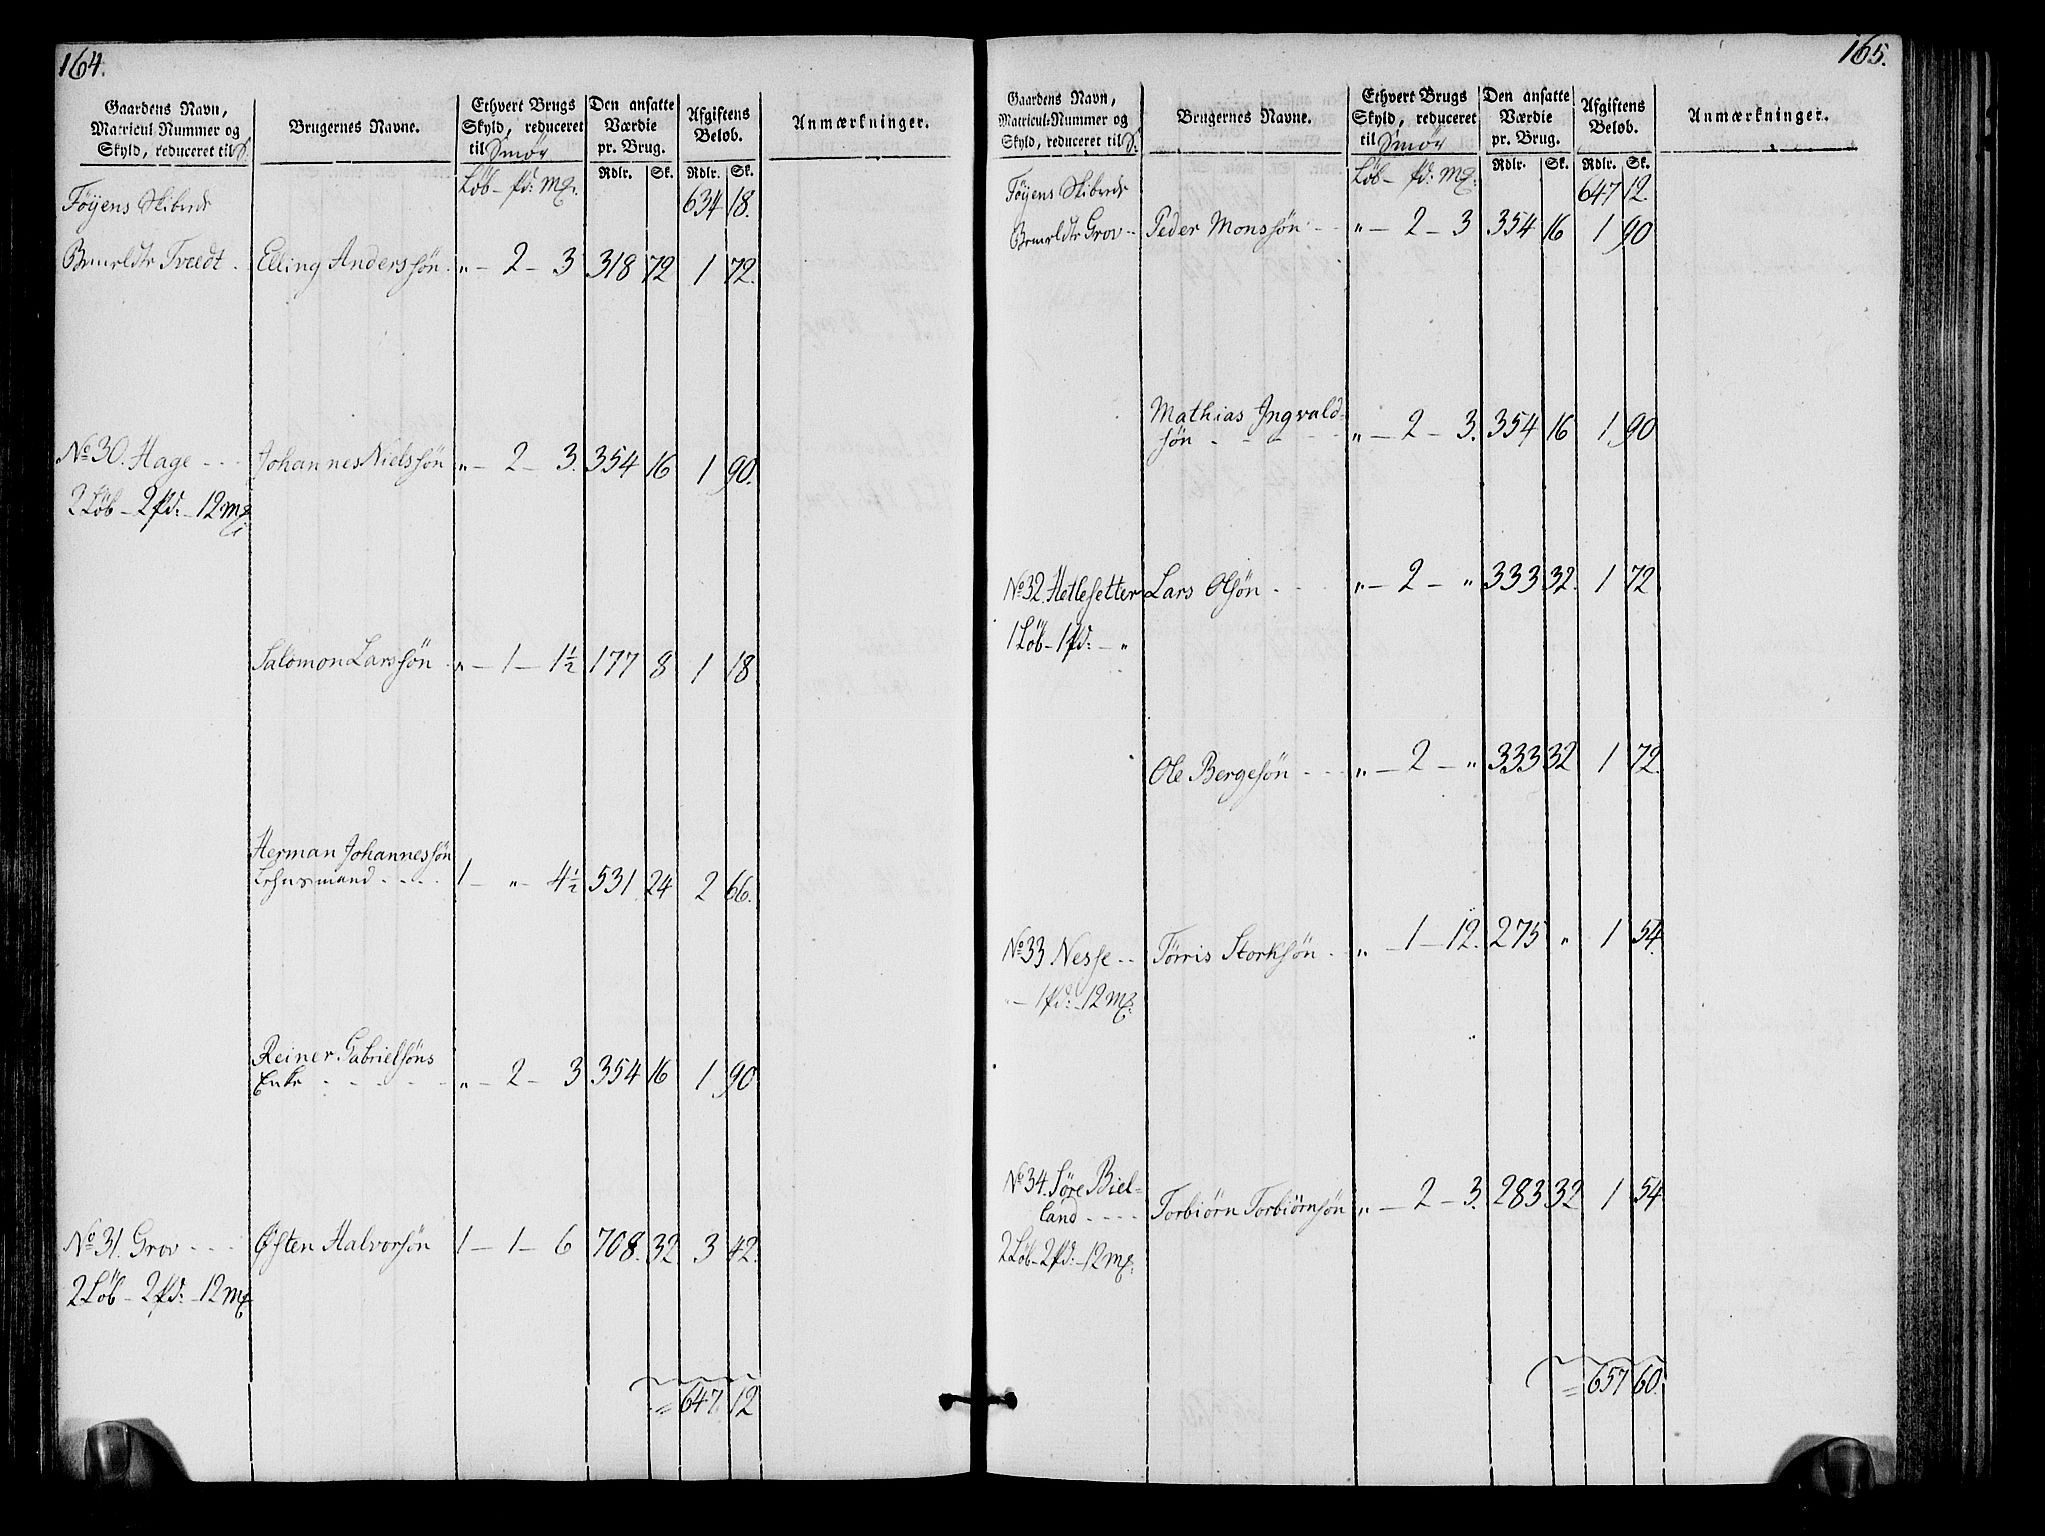 164.
Gaardens Navn, Matricul-Nummer og Skyld, reduceret til S. | Brugernes Navne. | Ethvert Brugs Skyld, reduceret til Smør | Den ansatte Værdie pr. Brug. | Afgiftens Beløb. | Anmærkninger.
Løb - pd: mg: | Rdlr. | Sk. | Rdlr. | Sk.
Föyens Skibrede 634 18.
Tvedt . Elling Anderssön . " - 2 - 3 318 72 1 72.
No 30. Hage - - - Johannes Nielssön " - 2 - 3. 354 16 1 90.
2 Løb - 2 pd: - 12 mg
Salomon Larssön . " - 1 - 1½ 177 8 1 18
Herman Johannessön
Lehnsmand - - - - 1 - " - 4½ 531 24 2 66.
Reiner Gabrielsöns
Enke - - - - - " - 2 - 3 354 16 1 90
No 31. Grov - - - Østen Halvorsön 1 - 1 - 6 708. 32 3 42.
2 Løb - 2 pd: - 12 mg
= 647. 12
165.
Gaardens Navn, Matricul-Nummer og Skyld, reduceret til S. | Brugernes Navne. | Ethvert Brugs Skyld, reduceret til Smør | Den ansatte Værdie pr. Brug. | Afgiftens Beløb. | Anmærkninger.
Løb - pd: mg: | Rdlr. | Sk. | Rdlr. | Sk.
Föyens Skibrede 647 12.
Grov - - Peder Monssön - - " - 2 - 3 354 16 1 90
Mathias Ingvald-
sön - - - - - " - 2 - 3. 354 16 1 90
No 32. Hetlesetter Lars Olsön - - - " - 2 - " 333 32. 1 72
1 Løb - 1 pd: - "
Ole Bergesön - - - " - 2 - " 333 32 1 72.
No 33 Nesse - - Törris Storksön - " - 1 - 12. 275 " 1 54.
" - 1 pd: - 12 mg:
No 34. Söre Biel-
land - - - - Torbiörn Torbiörnsön " - 2 - 3. 283 32 1 54
2 Løb - 2 pd: - 12 mg:
= 657 60.